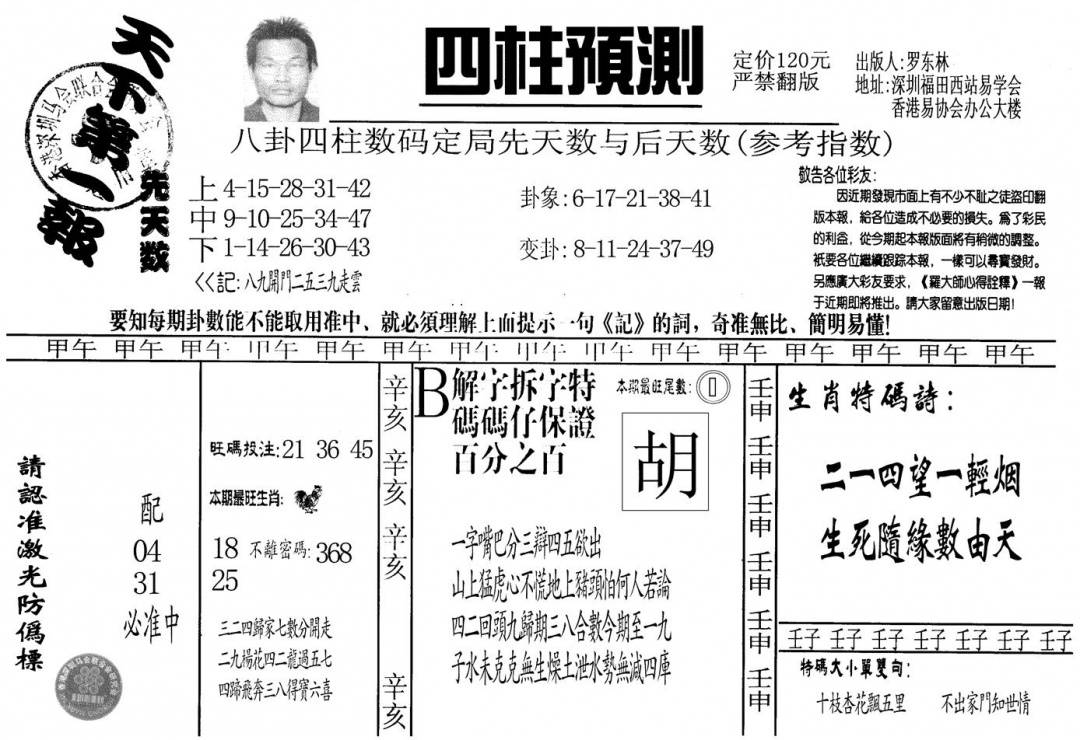 天下第一報
四柱預測
定价120元
严禁翻版
出版人:罗东林
地址:深圳福田西站易学会
香港易协会办公大楼
八卦四柱数码定局先天数与后天数(参考指数)
先天数
上 4-15-28-31-42
中 9-10-25-34-47
下 1-14-26-30-43
卦象: 6-17-21-38-41
变卦: 8-11-24-37-49
<<記: 八九開門二五三九走雲
敬告各位彩友:
因近期發現市面上有不少不耻之徒盜印翻
版本報,給各位造成不必要的損失。爲了彩民
的利益,從今期起本報版面將有稍微的調整。
衹要各位繼續跟踪本報,一樣可以尋寶發財。
另應廣大彩友要求,《羅大師心得詮釋》一報
于近期即將推出。請大家留意出版日期!
要知每期卦數能不能取用准中、就必須理解上面提示一句《記》的詞,奇准無比、簡明易懂!
甲午 甲午 甲午 甲午 甲午 甲午 甲午 甲午 甲午 甲午 甲午 甲午 甲午 甲午 甲午
請認准激光防僞標
配
04
31
必准中
旺碼投注: 21 36 45
本期最旺生肖:
18 不離密碼: 368
25
三二四歸家七數分開走
二九楊花四二龍過五七
四蹄飛奔三八得寶六喜
辛亥
辛亥
辛亥
辛亥
B
解字拆字特
碼碼仔保證
百分之百
本期最旺尾數:
胡
一字嘴巴分三辯四五欲出
山上猛虎心不慌地上豬頭怕何人若論
四二回頭九歸期三八合數今期至一九
子水未克克無生燥土泄水勢無減四庫
壬申
壬申
壬申
壬申
壬申
壬申
生肖特碼詩:
二一四望一輕烟
生死隨緣數由天
壬子 壬子 壬子 壬子 壬子 壬子 壬子
特碼大小單雙句:
十枝杏花飄五里 不出家門知世情